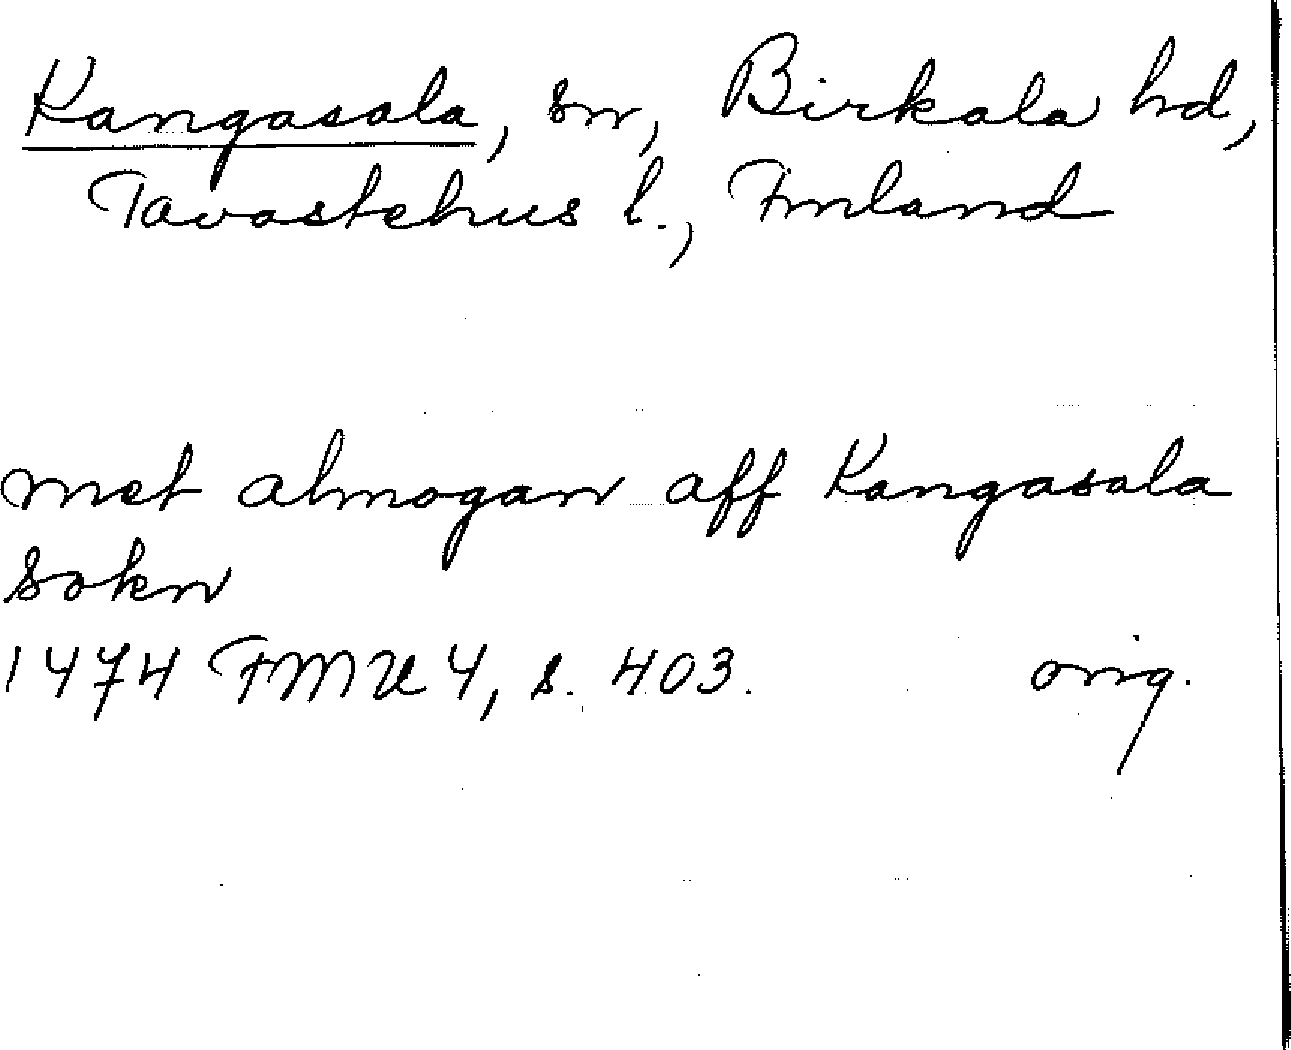 Kangasala, sn, Birkala hd,
Tavastehus l., Finland
met almogan aff Kangasala
sokn
1474 FMU 4, s. 403. orig.